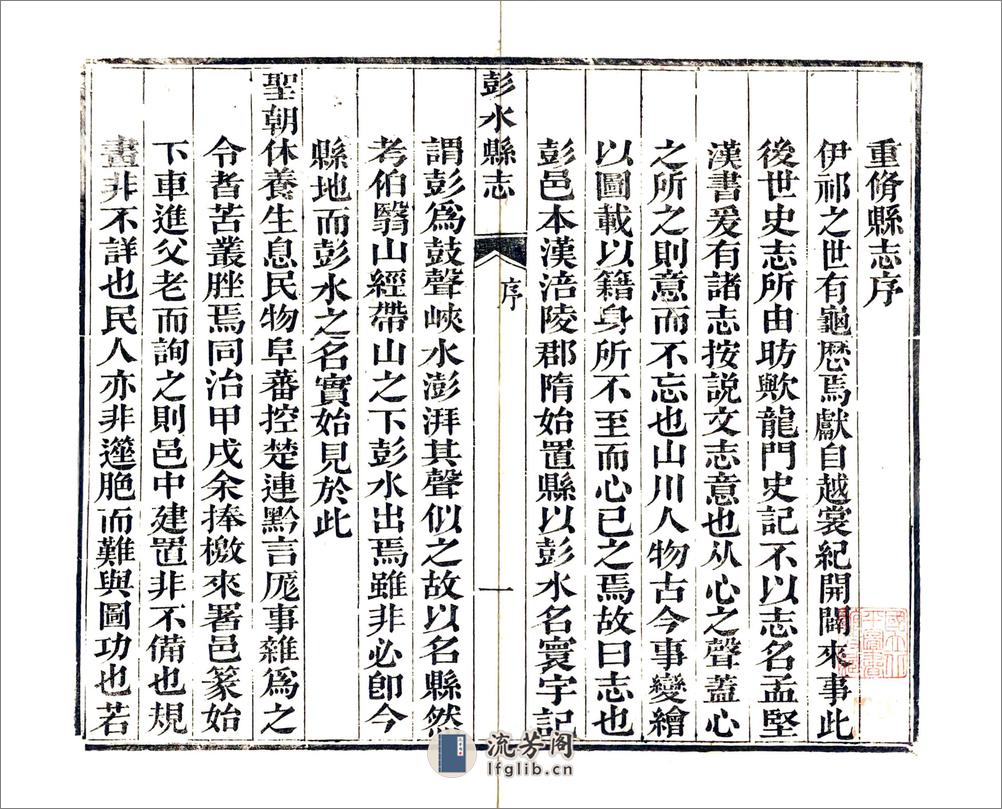 重脩縣志序
伊祁之世有龜厯焉獻自越裳紀開闢來事此
後世史志所由昉歟龍門史記不以志名孟堅
漢書爰有諸志按說文志意也从心之聲蓋心
之所之則意而不忘也山川人物古今事變繪
以圖載以籍身所不至而心已之焉故曰志也
彭邑本漢涪陵郡隋始置縣以彭水名寰宇記
彭水縣志
序
一
謂彭爲鼓聲峽水澎湃其聲似之故以名縣然
考伯翳山經帶山之下彭水出焉雖非必卽今
縣地而彭水之名實始見於此
聖朝休養生息民物阜蕃控楚連黔言厖事雜爲之
令者苦叢脞焉同治甲戌余捧檄來署邑篆始
下車進父老而詢之則邑中建置非不備也規
畫非不詳也民人亦非邈脃而難與圖功也若
流芳阁
lfglib.cn